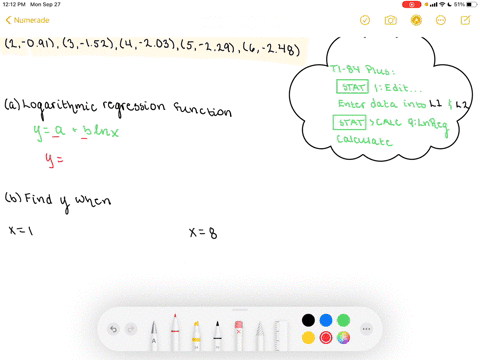 12:12 PM Mon Sep 27
51%
Numerade
(2,-0.91), (3,-1.52), (4,-2.03), (5,-2.29), (6,-2.48)
TI-84 Plus:
STAT 1: Edit...
Enter data into L1 & L2
STAT > CALC 9:LnReg
Calculate
(a) Logarithmic regression function
y = a + b ln x
y =
(b) Find y when
x = 1
x = 8